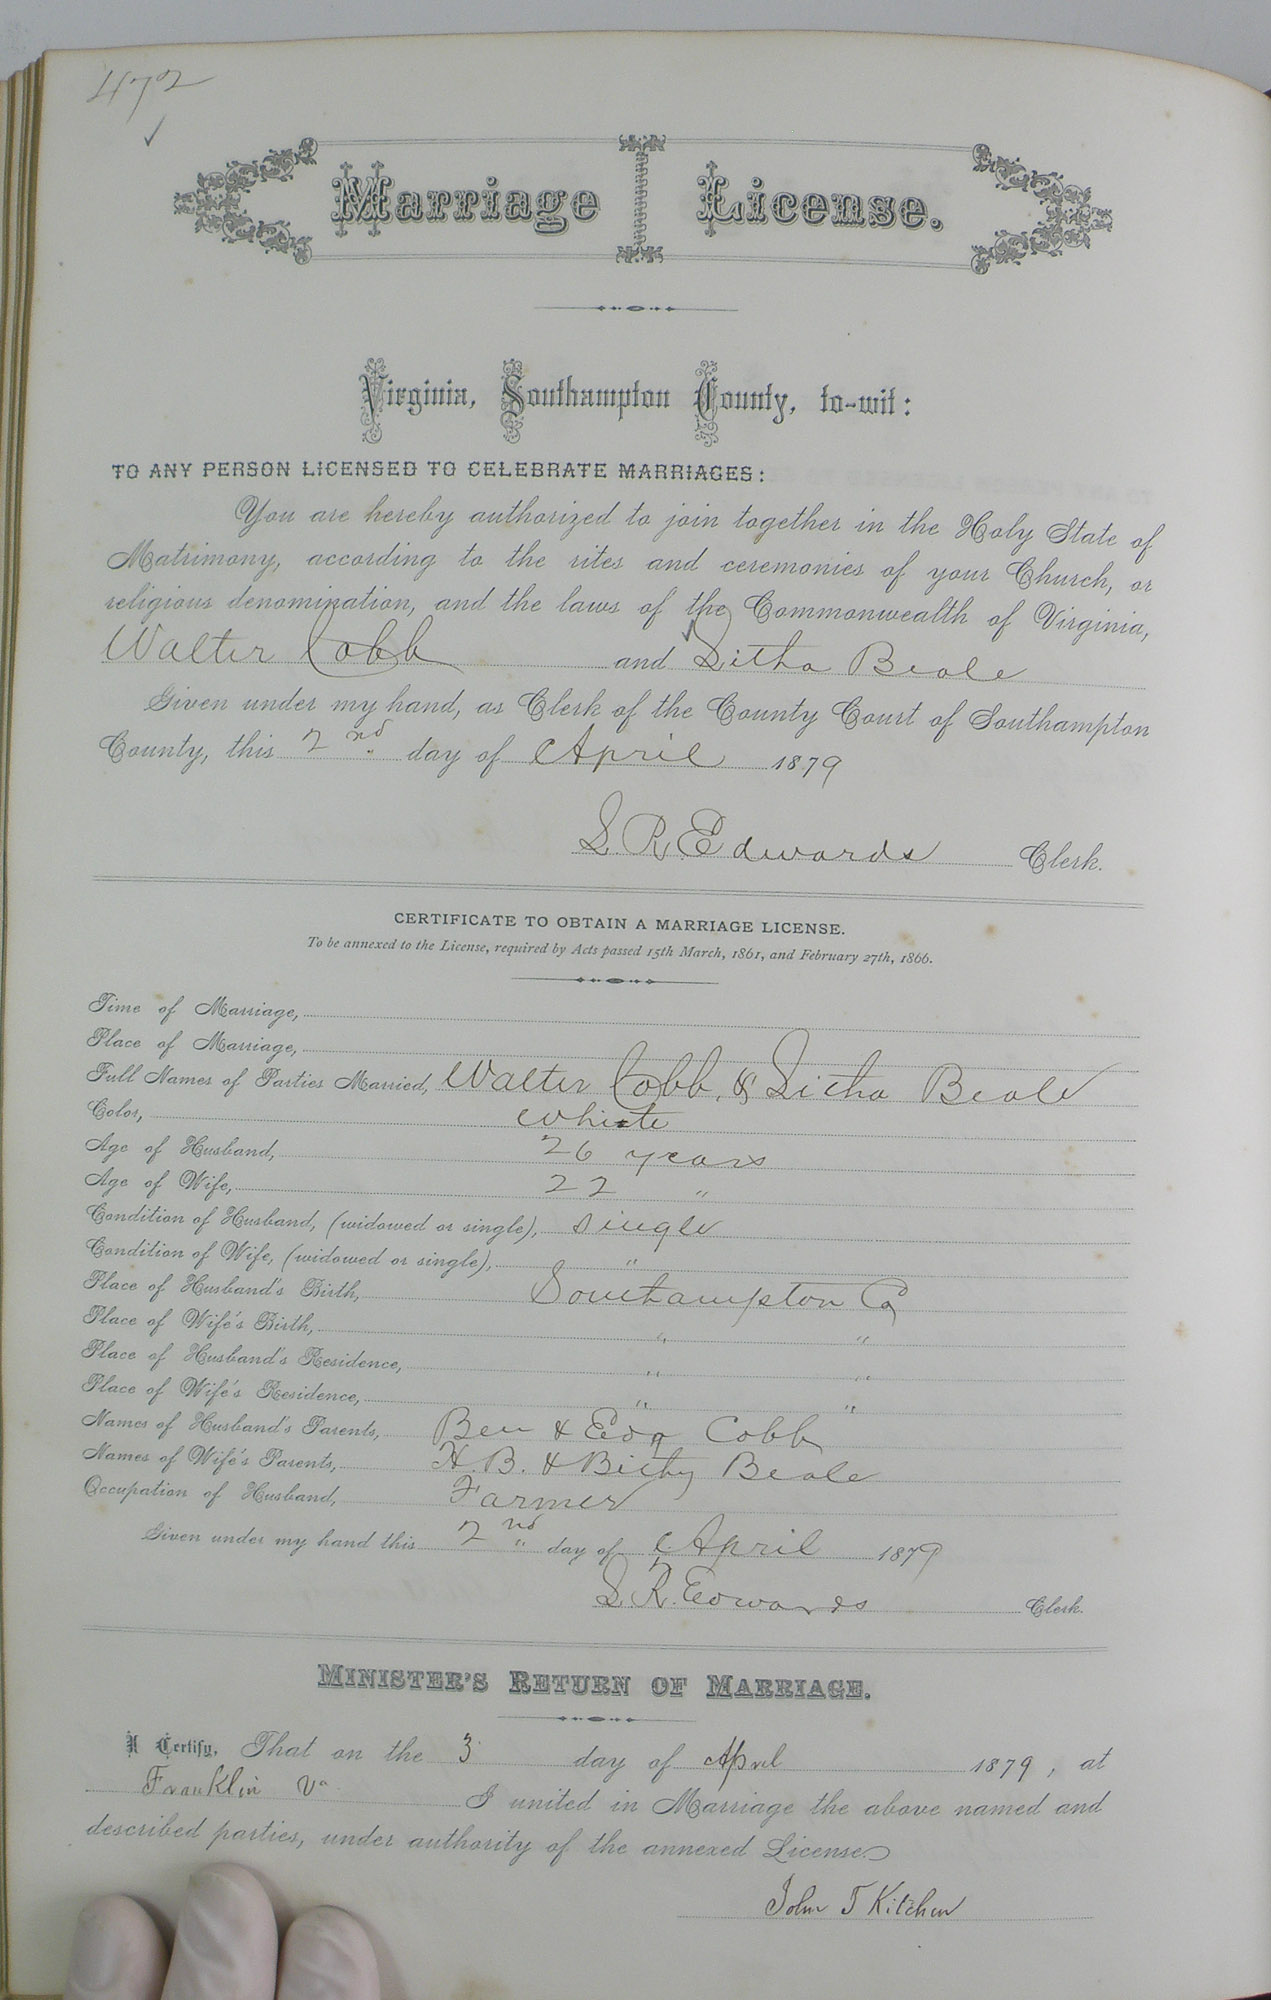 472
Marriage License.
Virginia, Southampton County, to-wit:
TO ANY PERSON LICENSED TO CELEBRATE MARRIAGES:
You are hereby authorized to join together in the Holy State of
Matrimony, according to the rites and ceremonies of your Church, or
religious denomination, and the laws of the Commonwealth of Virginia,
Walter Cobb and Litha Beale
Given under my hand, as Clerk of the County Court of Southampton
County, this 2nd day of April 1879
L. R. Edwards Clerk.
CERTIFICATE TO OBTAIN A MARRIAGE LICENSE.
To be annexed to the License, required by Acts passed 15th March, 1861, and February 27th, 1866.
Time of Marriage,
Place of Marriage,
Full Names of Parties Married, Walter Cobb, & Litha Beale
Color, White
Age of Husband, 26 years
Age of Wife, 22 "
Condition of Husband, (widowed or single), single
Condition of Wife, (widowed or single), "
Place of Husband's Birth, Southampton Co
Place of Wife's Birth, " "
Place of Husband's Residence, " "
Place of Wife's Residence, " "
Names of Husband's Parents, Ben & Cobb
Names of Wife's Parents, H. B. & Beale
Occupation of Husband, Farmer
Given under my hand this 2nd day of April 1879
L. R. Edwards Clerk.
MINISTER'S RETURN OF MARRIAGE.
I Certify, That on the 3 day of April 1879, at
Franklin Va I united in Marriage the above named and
described parties, under authority of the annexed License.
John T Kitchen